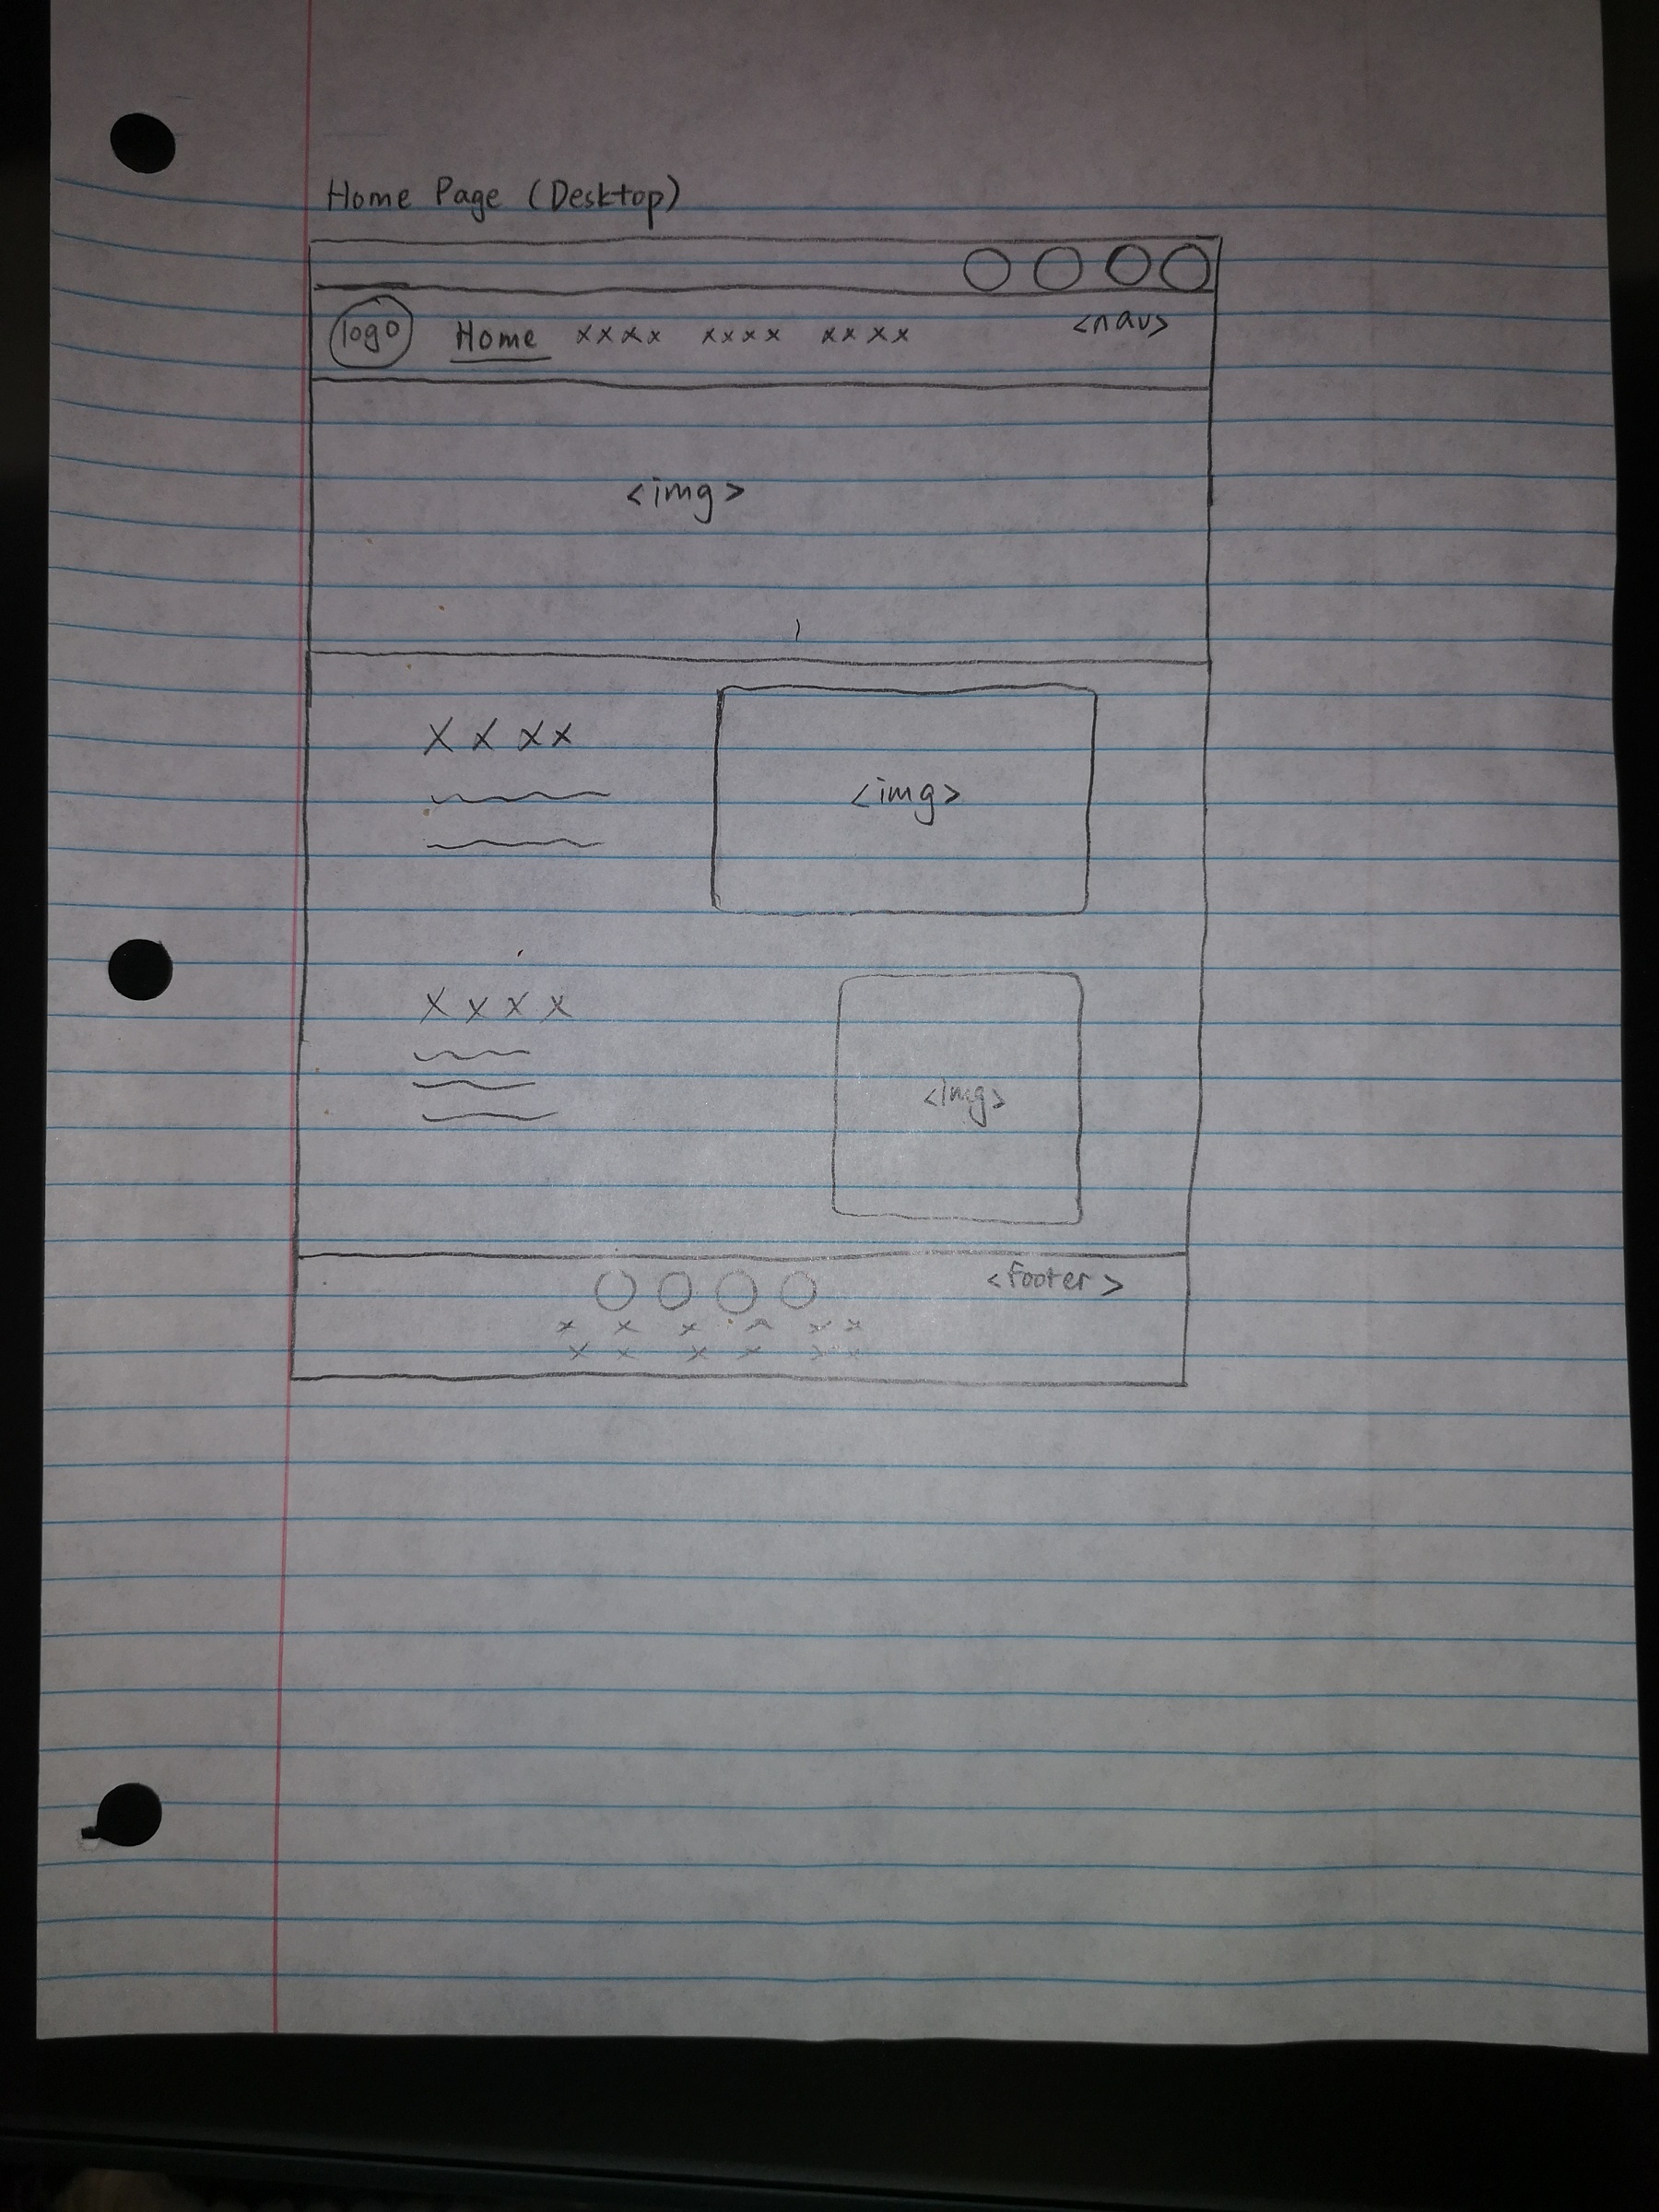 Home Page (Desktop)
logo Home xxxx xxxx xxxx <nav>
<img>
X X X X
<img>
X X X X
<img>
<footer>
x x x x x x
x x x x x x